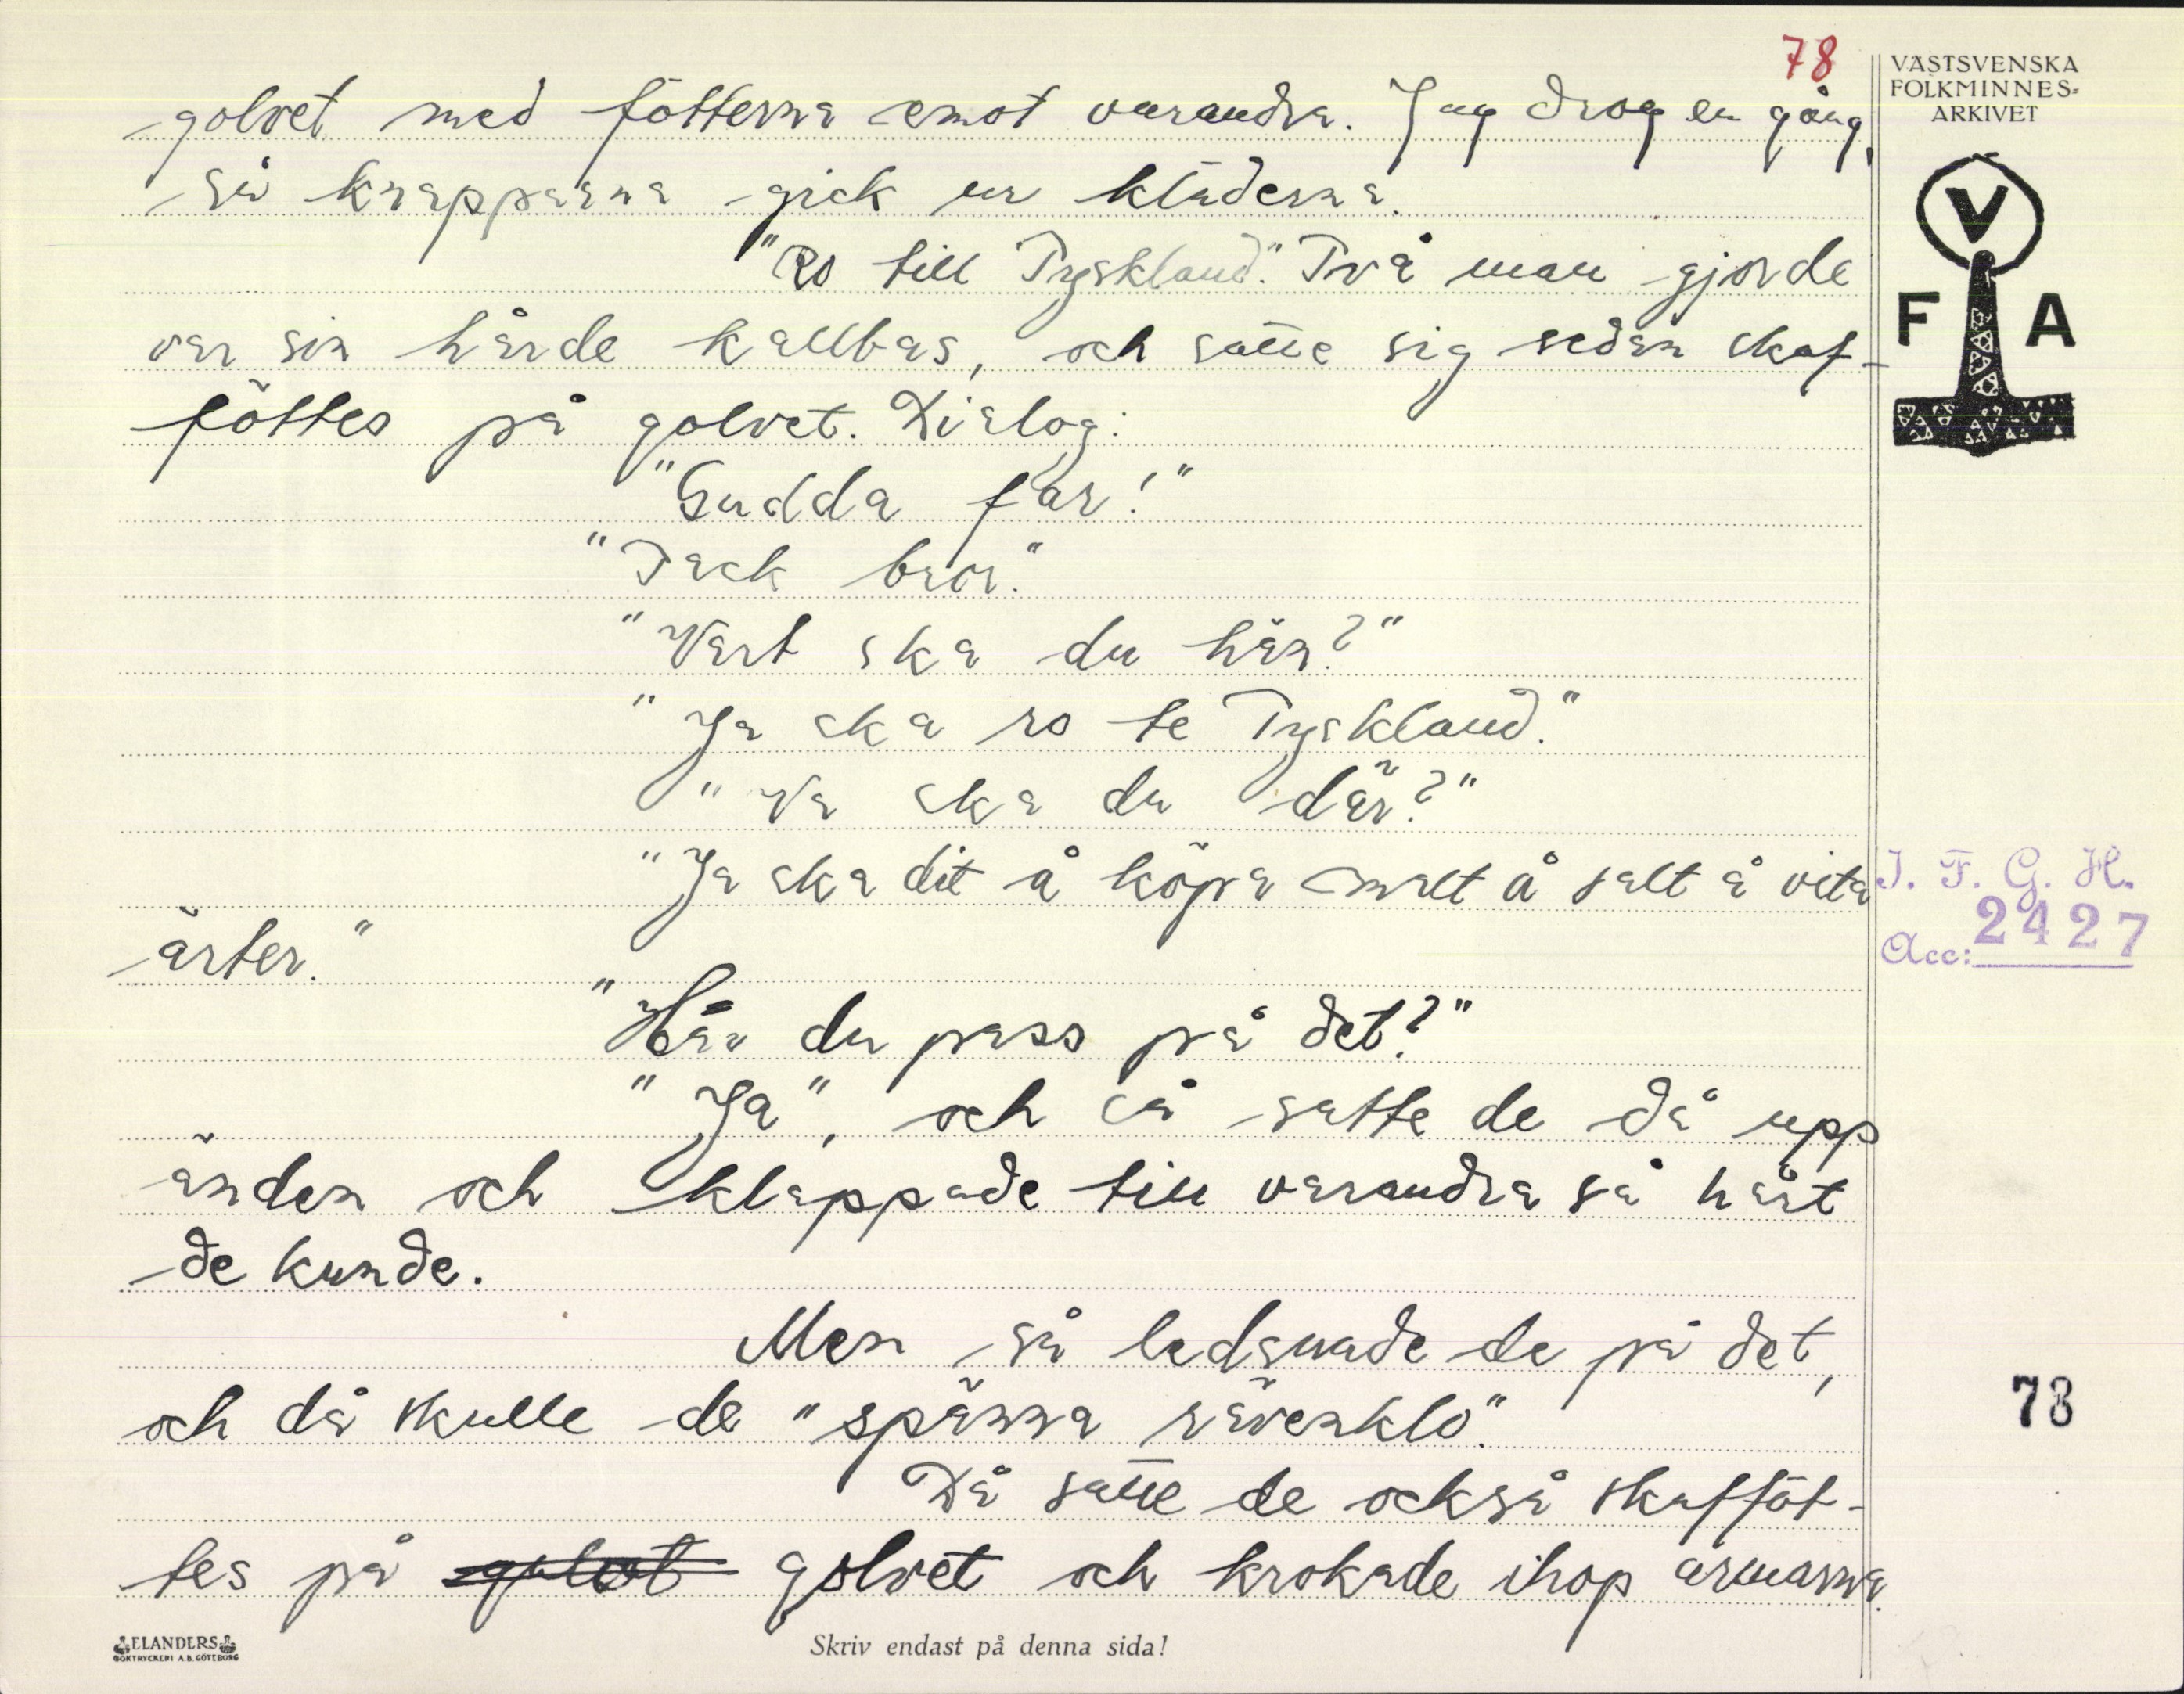 78
VÄSTSVENSKA
FOLKMINNES-
ARKIVET
golvet med fötterna emot varandra. Jag drog en gång,
så knapparna gick ur kläderna.
"Ro till Tyskland". Två man gjorde
var sin hårde kallbas, och satte sig sedan skaf-
föttes på golvet. Dialog:
"Gudda far!"
"Tack bror."
"Vart ska du hän?"
"Ja ska ro te Tyskland."
"Va ska du där?"
"Ja ska dit å köpa malt å salt å vita
ärter."
"Har du pass på det?"
"Ja", och så satte de då upp
änden och klappade till varandra så hårt
de kunde.
Men så ledsnade de på det,
och då skulle de "spänna rävenklo".
Då satte de också skafföt-
tes på golvet golvet och krokade ihop armarna.
V
F A
I. F. G. H.
Acc: 2427
78
ELANDERS
BOKTRYCKERI A.B. GÖTEBORG
Skriv endast på denna sida!